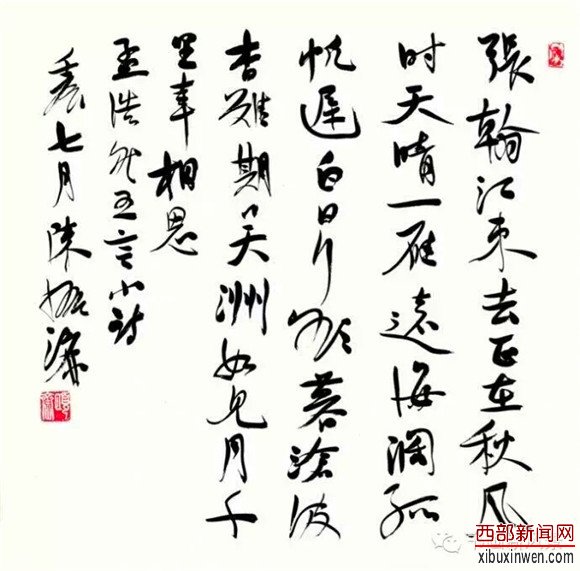 張翰江東去正在秋风
时天晴一雁遠海阔孤
帆遲白日行欲暮滄波
杳難期吴洲如见月千
里幸相思
孟浩然五言小诗
七月陈振濂
西部新闻网
xibuxinwen.com